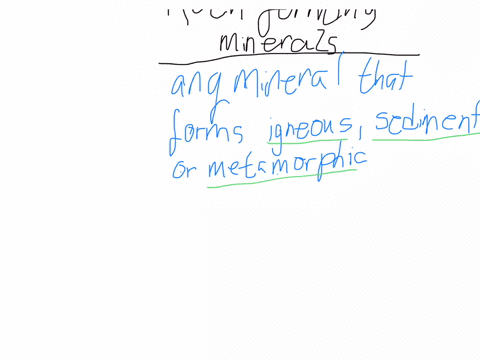 Rock forming
minerals
any mineral that
forms igneous, sediment
or metamorphic